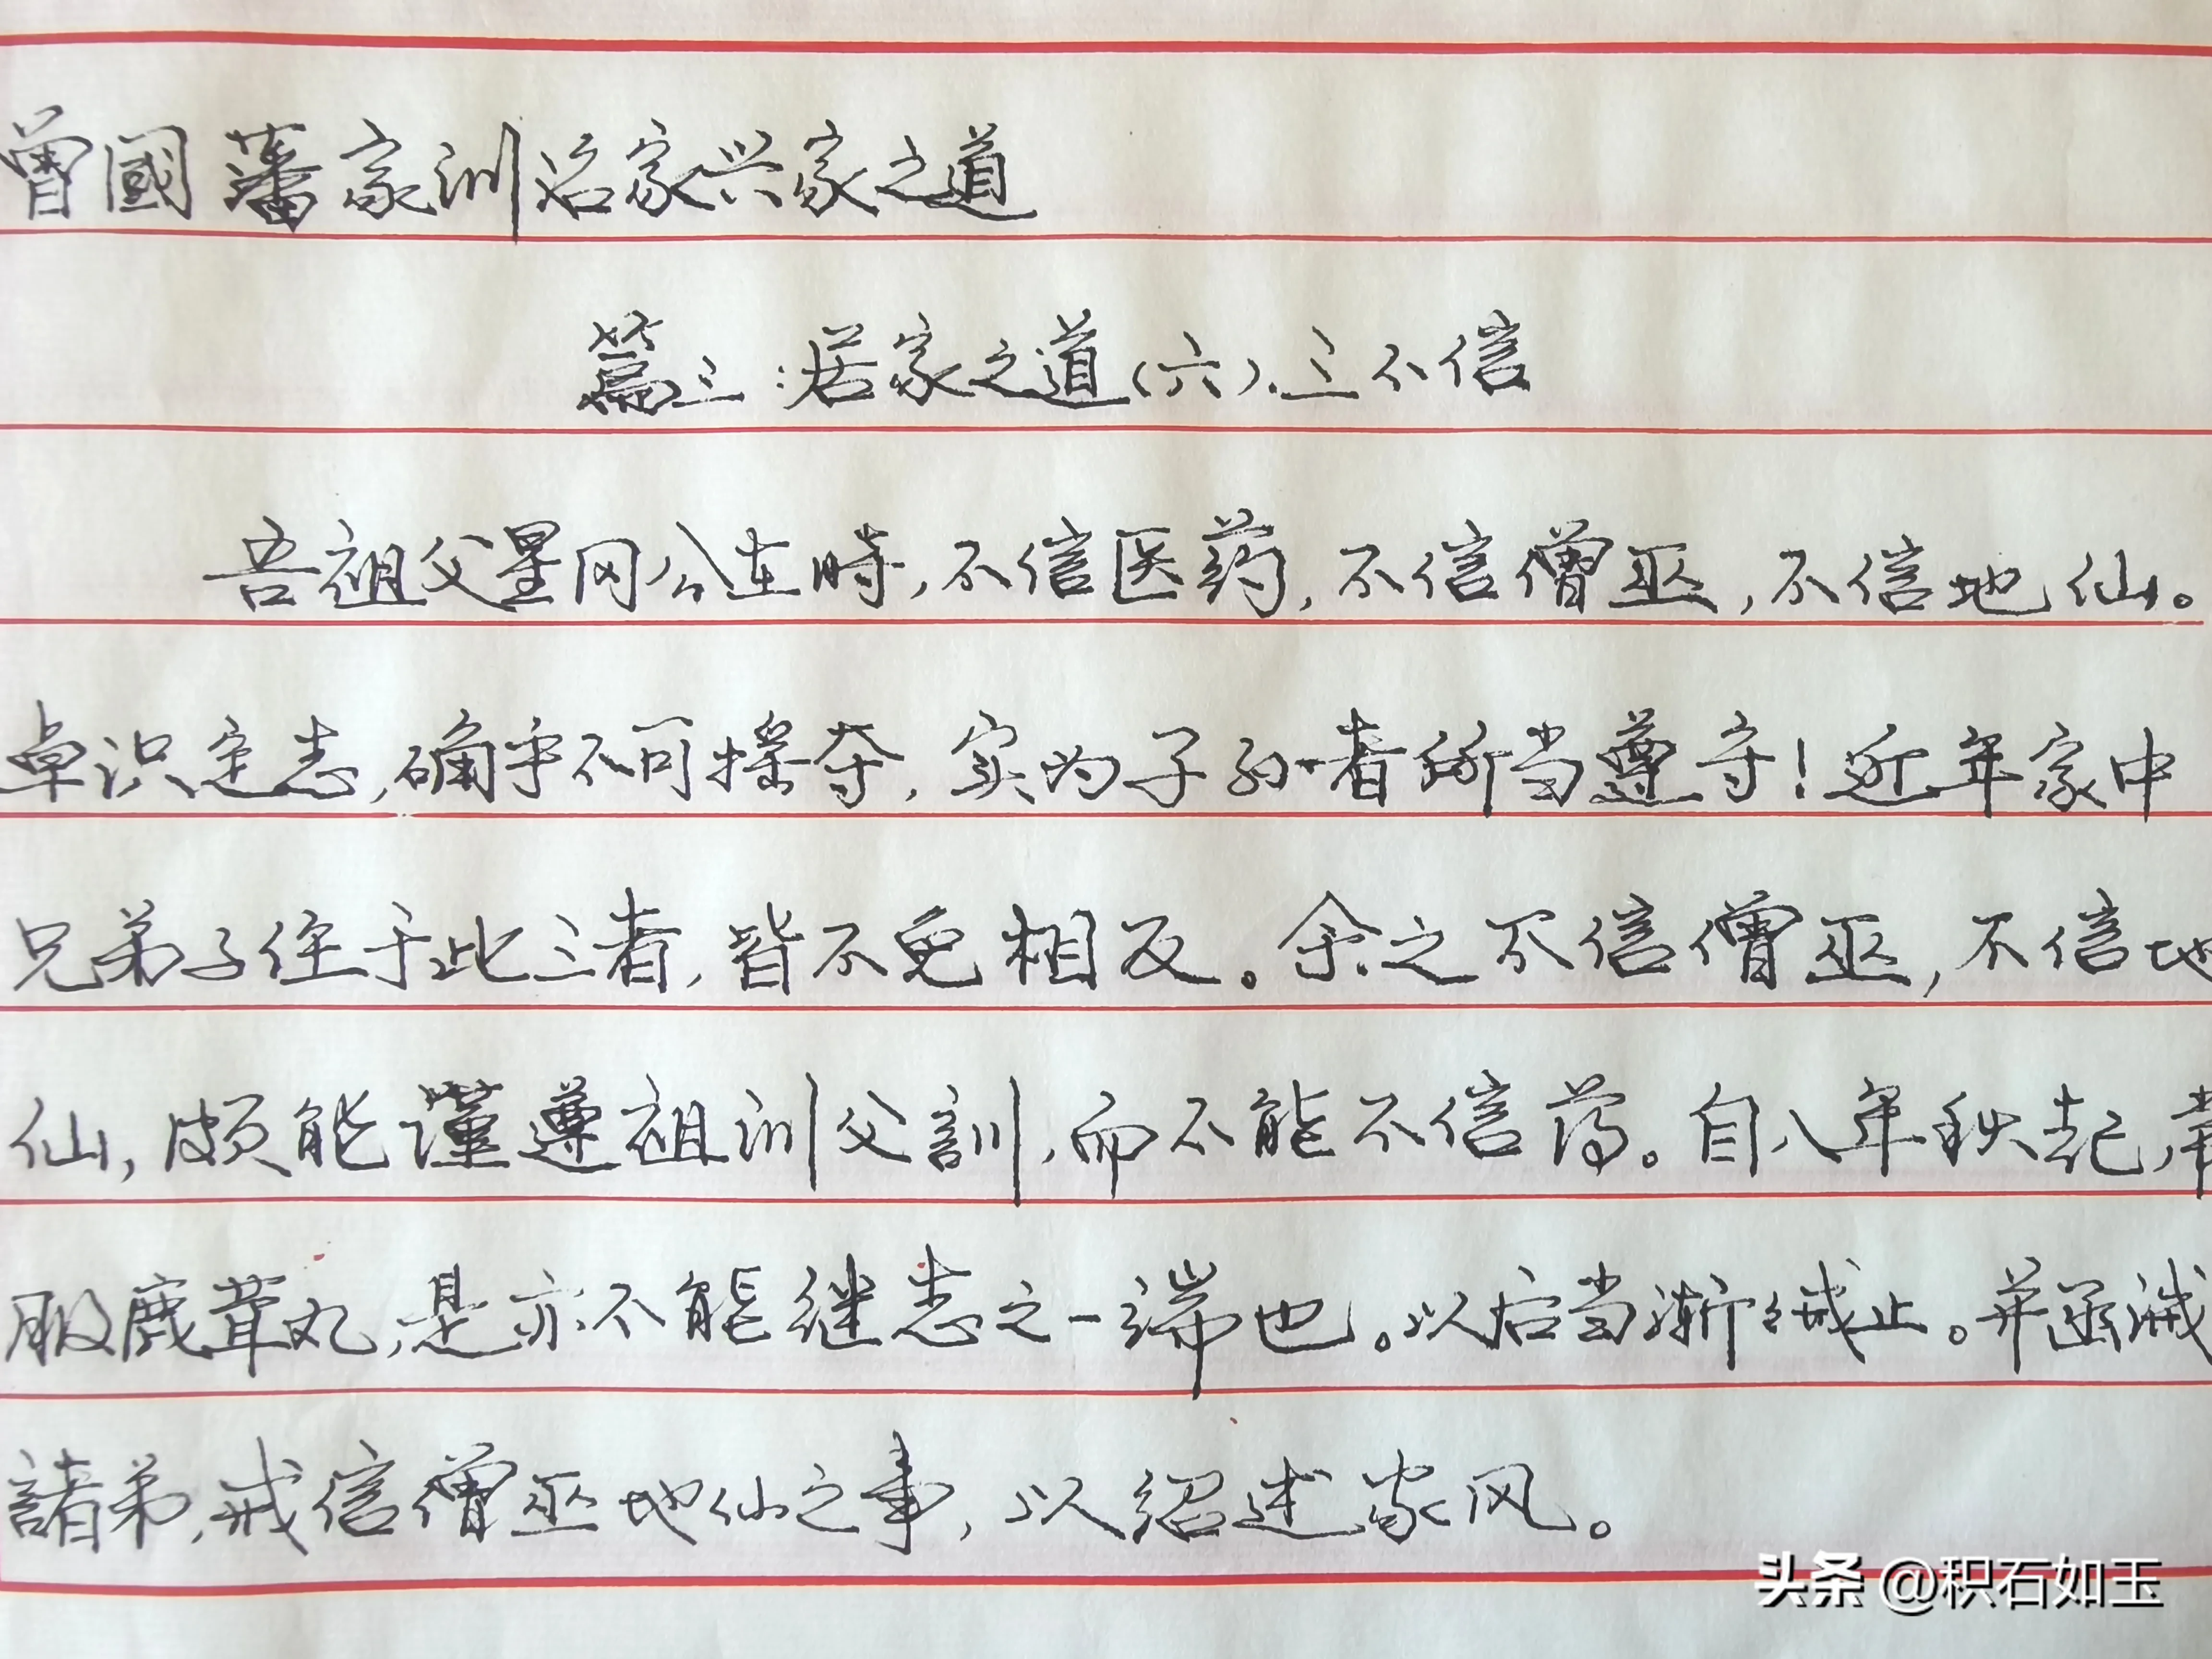 曾國藩家训治家兴家之道
篇三:居家之道(六).三不信
吾祖父星冈公在時,不信医药,不信僧巫,不信地仙。
卓识定志,确乎不可摇夺,实为子孙者所当遵守!近年家中
兄弟子侄于此三者,皆不免相反。余之不信僧巫,不信地
仙,颇能谨遵祖训父訓,而不能不信药。自八年秋起,常
服鹿茸丸,是亦不能继志之一端也。以后当渐渐减止。并函诫
諸弟,戒信僧巫地仙之事,以绍述家风。
头条 @积石如玉